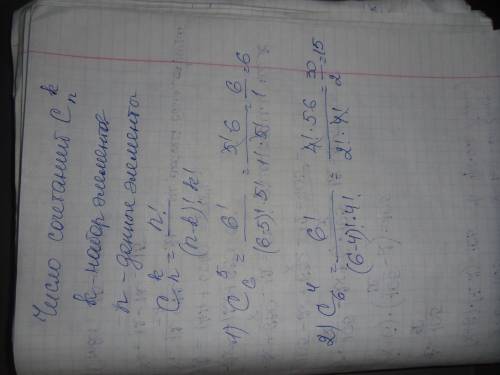 Число сочетаний C_n^k
k - набор элементов
n - данные элементы
C_n^k = n! / (n-k)! k!
1) C_6^5 = 6! / (6-5)! 5! = 5! 6 / 1! · 5! = 6 / 1 = 6
2) C_6^4 = 6! / (6-4)! · 4! = 4! · 5 6 / 2! · 4! = 30 / 2 = 15